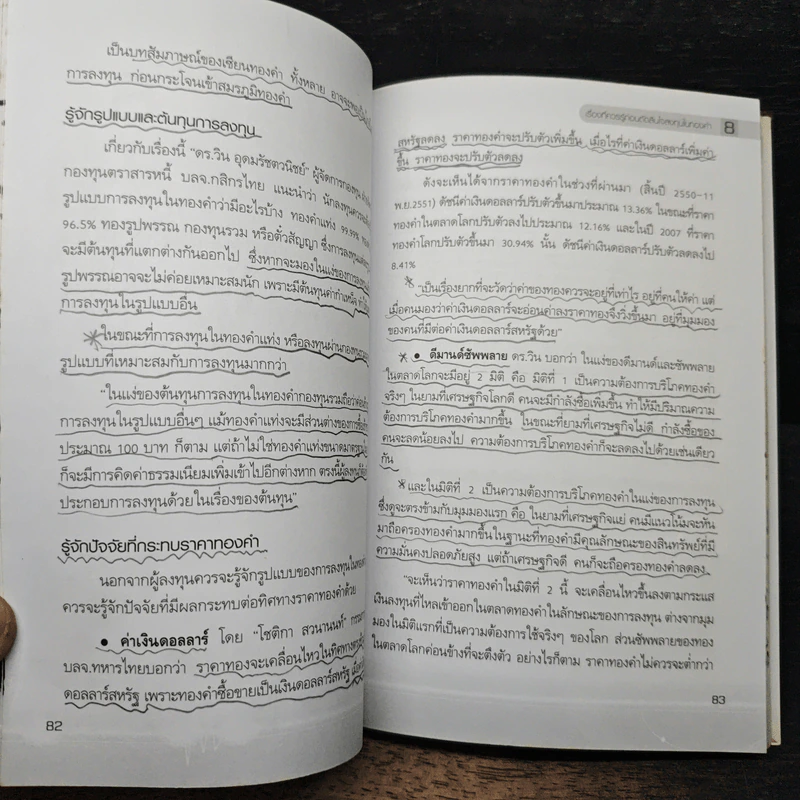 เป็นบทสัมภาษณ์ของเซียนทองคำ ทั้งหลาย
การลงทุน ก่อนกระโจนเข้าสมรภูมิทองคำ
รู้จักรูปแบบและต้นทุนการลงทุน
เกี่ยวกับเรื่องนี้ "ดร.วิน อุดมรัชตวนิชย์" ผู้จัดการกองทุน
กองทุนตราสารหนี้ บลจ.กสิกรไทย แนะนำว่า นักลงทุนควร
รูปแบบการลงทุนในทองคำว่ามีอะไรบ้าง ทองคำแท่ง 99.99%
96.5% ทองรูปพรรณ กองทุนรวม หรือตั๋วสัญญา ซึ่งการลงทุน
จะมีต้นทุนที่แตกต่างกันออกไป ซึ่งหากจะมองในแง่ของการลงทุน
รูปพรรณอาจจะไม่ค่อยเหมาะสมนัก เพราะมีต้นทุนค่ากำเหน็จ
การลงทุนในรูปแบบอื่น
ในขณะที่การลงทุนในทองคำแท่ง หรือลงทุนผ่านกองทุนรวม
รูปแบบที่เหมาะสมกับการลงทุนมากกว่า
"ในแง่ของต้นทุนการลงทุนในทองคำกองทุนรวมถือว่า
การลงทุนในรูปแบบอื่นๆ แม้ทองคำแท่งจะมีส่วนต่างของการซื้อ
ประมาณ 100 บาท ก็ตาม แต่ถ้าไม่ใช่ทองคำแท่งขนาดมาตรฐาน
ก็จะมีการคิดค่าธรรมเนียมเพิ่มเข้าไปอีกต่างหาก ตรงนี้ผู้ลงทุน
ประกอบการลงทุนด้วยในเรื่องของต้นทุน"
รู้จักปัจจัยที่กระทบราคาทองคำ
นอกจากผู้ลงทุนควรจะรู้จักรูปแบบของการลงทุนใน
ควรจะรู้จักปัจจัยที่มีผลกระทบต่อทิศทางราคาทองคำด้วย
● ค่าเงินดอลลาร์ โดย "โชติกา สวนานนท์"
บลจ.ทหารไทยบอกว่า ราคาทองจะเคลื่อนไหวในทิศทาง
ดอลลาร์สหรัฐ เพราะทองคำซื้อขายเป็นเงินดอลลาร์สหรัฐ
82
เรื่องที่ควรรู้ก่อนตัดสินใจลงทุนในทองคำ 8
สหรัฐลดลง ราคาทองคำจะปรับตัวเพิ่มขึ้น เมื่อไรที่ค่าเงินดอลลาร์เพิ่มค่า
ขึ้น ราคาทองจะปรับตัวลดลง
ดังจะเห็นได้จากราคาทองคำในช่วงที่ผ่านมา (สิ้นปี 2550-11
พ.ย.2551) ดัชนีค่าเงินดอลลาร์ปรับตัวขึ้นมาประมาณ 13.36% ในขณะที่ราคา
ทองคำในตลาดโลกปรับตัวลงไปประมาณ 12.16% และในปี 2007 ที่ราคา
ทองคำโลกปรับตัวขึ้นมา 30.94% นั้น ดัชนีค่าเงินดอลลาร์ปรับตัวลดลงไป
8.41%
"เป็นเรื่องยากที่จะวัดว่าค่าของทองควรจะอยู่ที่เท่าไร อยู่ที่คนให้ค่า แต่
เมื่อคนมองว่าค่าเงินดอลลาร์จะอ่อนค่าลงราคาทองจึงวิ่งขึ้นมา อยู่ที่มุมมอง
ของคนที่มีต่อค่าเงินดอลลาร์สหรัฐด้วย"
● ดีมานด์ซัพพลาย ดร.วิน บอกว่า ในแง่ของดีมานด์และซัพพลาย
ในตลาดโลกจะมีอยู่ 2 มิติ คือ มิติที่ 1 เป็นความต้องการบริโภคทองคำ
จริงๆ ในยามที่เศรษฐกิจโลกดี คนจะมีกำลังซื้อเพิ่มขึ้น ทำให้มีปริมาณความ
ต้องการบริโภคทองคำมากขึ้น ในขณะที่ยามที่เศรษฐกิจไม่ดี กำลังซื้อของ
คนจะลดน้อยลงไป ความต้องการบริโภคทองคำก็จะลดลงไปด้วยเช่นเดียว
กัน
และในมิติที่ 2 เป็นความต้องการบริโภคทองคำในแง่ของการลงทุน
ซึ่งดูจะตรงข้ามกับมุมมองแรก คือ ในยามที่เศรษฐกิจแย่ คนมีแนวโน้มจะหัน
มาถือครองทองคำมากขึ้นในฐานะที่ทองคำมีคุณลักษณะของสินทรัพย์ที่มี
ความมั่นคงปลอดภัยสูง แต่ถ้าเศรษฐกิจดี คนก็จะถือครองทองคำลดลง
"จะเห็นว่าราคาทองคำในมิติที่ 2 นี้ จะเคลื่อนไหวขึ้นลงตามกระแส
เงินลงทุนที่ไหลเข้าออกในตลาดทองคำในลักษณะของการลงทุน ต่างจากมุม
มองในมิติแรกที่เป็นความต้องการใช้จริงๆ ของโลก ส่วนซัพพลายของทอง
ในตลาดโลกค่อนข้างที่จะตึงตัว อย่างไรก็ตาม ราคาทองคำไม่ควรจะต่ำกว่า
83